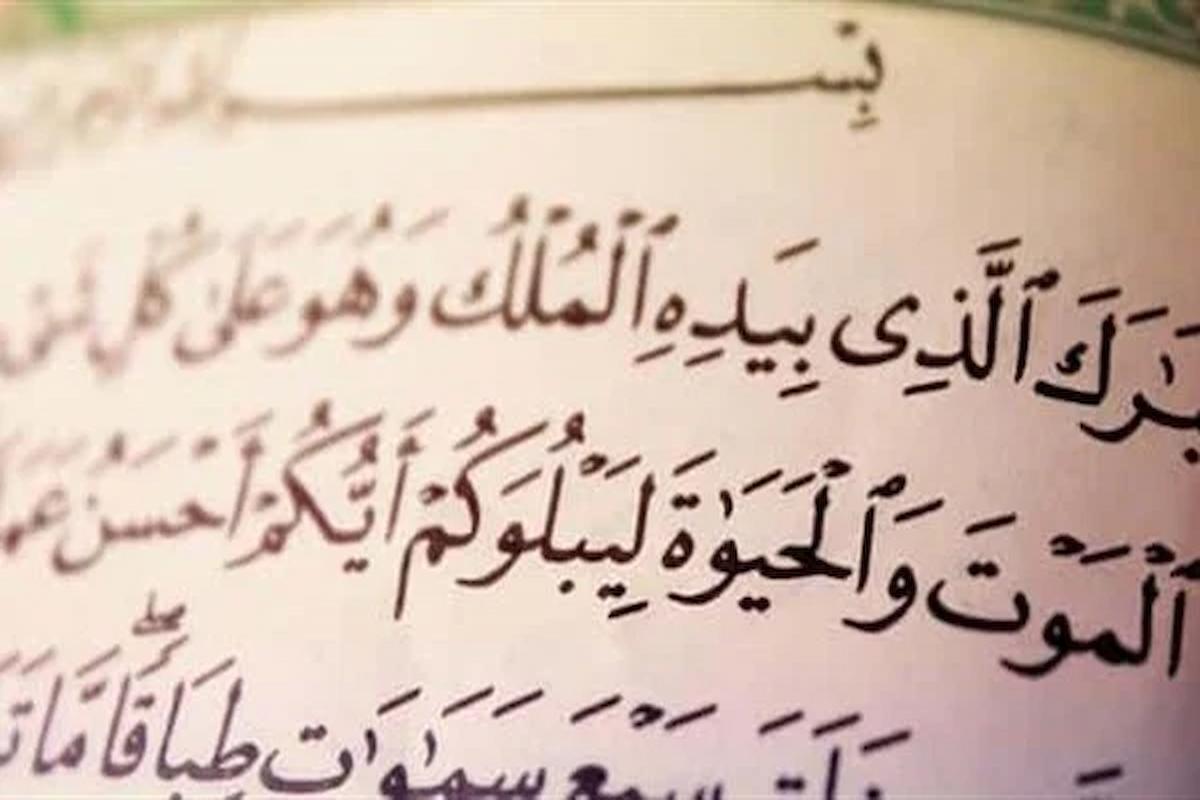 بِسْـــــــ
بَٰرَكَ ٱلَّذِى بِيَدِهِ ٱلْمُلْكُ وَهُوَ عَلَىٰ كُلِّ شَىْ
ٱلْمَوْتَ وَٱلْحَيَوٰةَ لِيَبْلُوَكُمْ أَيُّكُمْ أَحْسَنُ عَمَ
خَلَقَ سَبْعَ سَمَٰوَٰتٍ طِبَاقًا ۖ مَّا تَ